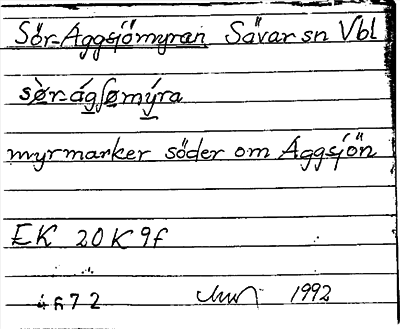 Sör-Aggsjömyran Sävar sn Vbl
sø̀r-ágʃømýra
myrmarker söder om Aggsjön
EK 20 K 9f
4672 1992